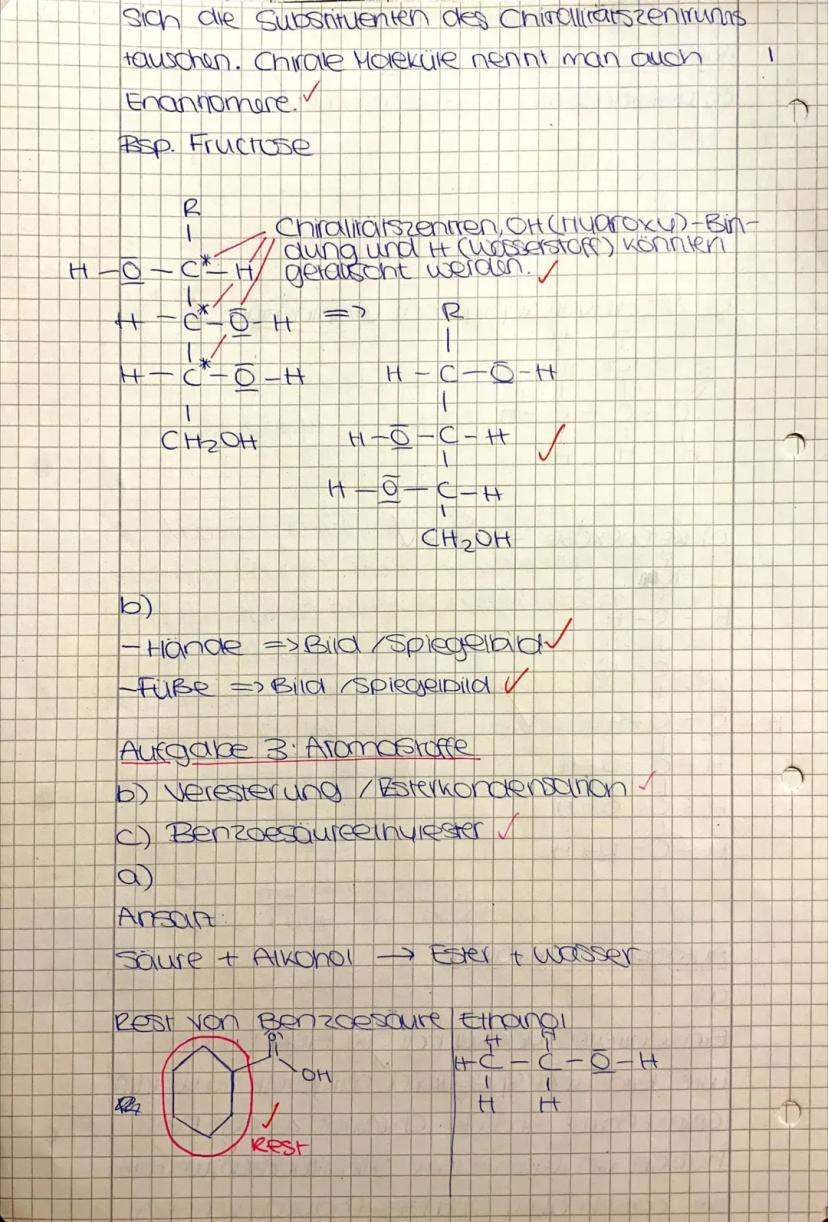 sich die Substituenten des Chiralitätszentrums
tauschen. Chirale Moleküle nennt man auch 1
Enantiomere. ✓
Bsp. Fructose
R
Chiralitätszentren, OH (Hydroxy)-Bin-
dung und H (Wasserstoff) könnten
getauscht werden. ✓
H-O-C*-H
H-C*-O-H => R
H-C*-O-H H-C-O-H
CH2OH H-O-C-H ✓
H-O-C-H
CH2OH
b)
-Hände => Bild /Spiegelbild ✓
-Füße => Bild /Spiegelbild ✓
Aufgabe 3: Aromastoffe
b) Veresterung / Esterkondensation ✓
c) Benzoesäureethylester ✓
a)
Ansatz:
Säure + Alkohol → Ester + Wasser
Rest von Benzoesäure Ethanol
O H H
OH H-C-C-O-H
H H
✓
Rest